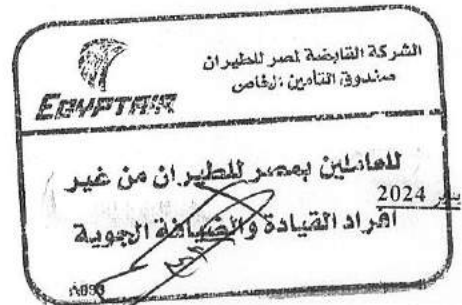 الشركة القابضة لمصر للطيران
صندوق التأمين الخاص
EGYPTAIR
للعاملين بمصر للطيران من غير
2024
افراد القيادة والضيافة الجوية